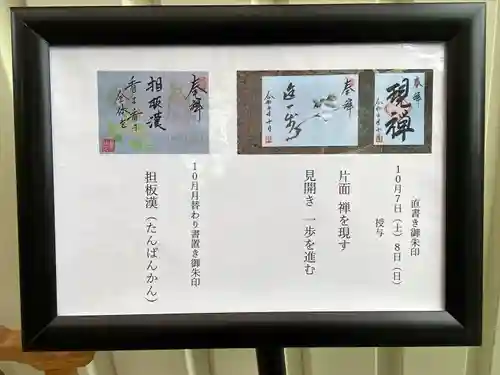 奉拝
現禅
奉拝
進一歩
直書き御朱印
10月7日（土）8日（日）
授与
片面 禅を現す
見開き 一歩を進む
奉拝
担板漢
10月月替わり書置き御朱印
担板漢（たんぱんかん）